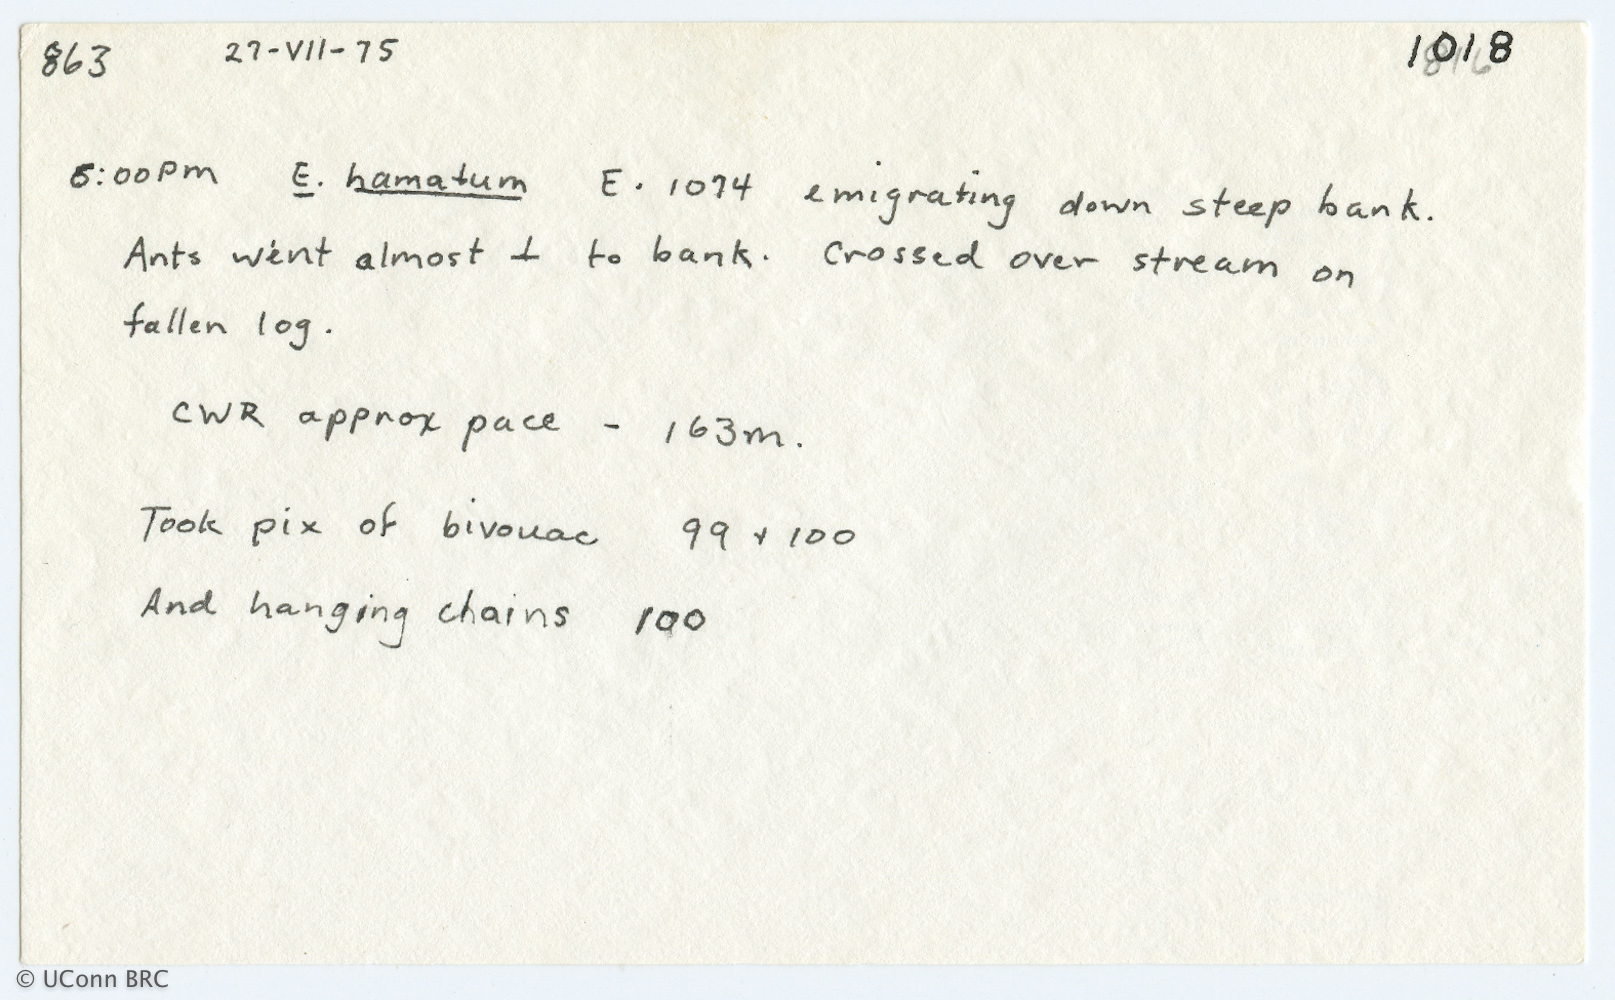 863 27-VII-75 1018
5:00pm E. hamatum E. 1074 emigrating down steep bank.
Ants went almost ⊥ to bank. Crossed over stream on
fallen log.
CWR approx pace - 163m.
Took pix of bivouac 99 + 100
And hanging chains 100
© UConn BRC